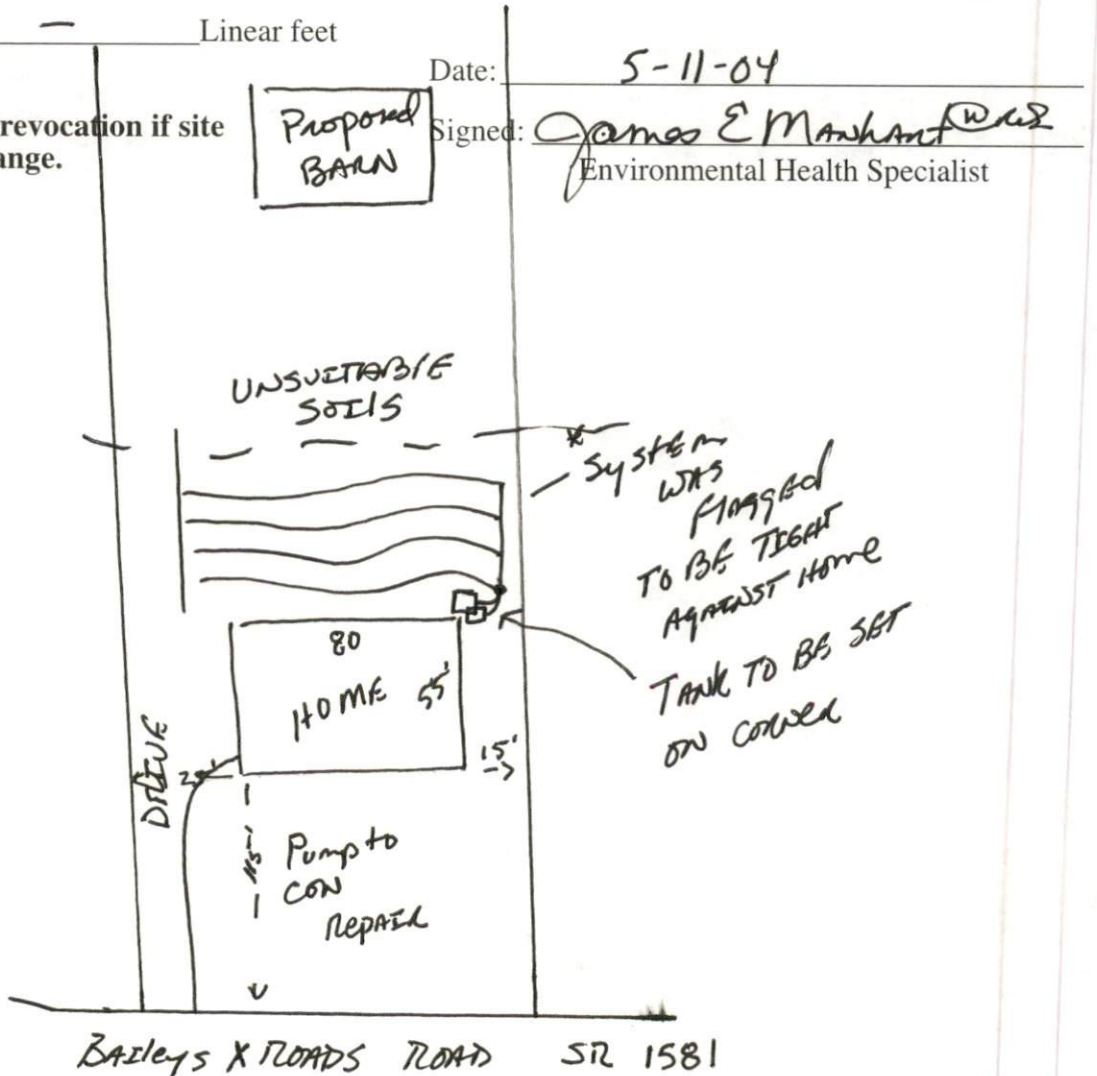 — Linear feet
Date: 5-11-04
revocation if site
ange.
Signed: James E Manhart
Environmental Health Specialist
Proposed
BARN
UNSUITABlE
SoIlS
* System
WAS
Flagged
TO BE TIGHT
AGAINST Home
TANK TO BE SET
ON CORNER
80
HOME 55'
15'
25'
DRIVE
115'
Pump to
CON
REPAIR
BAIleys X ROADS ROAD SR 1581